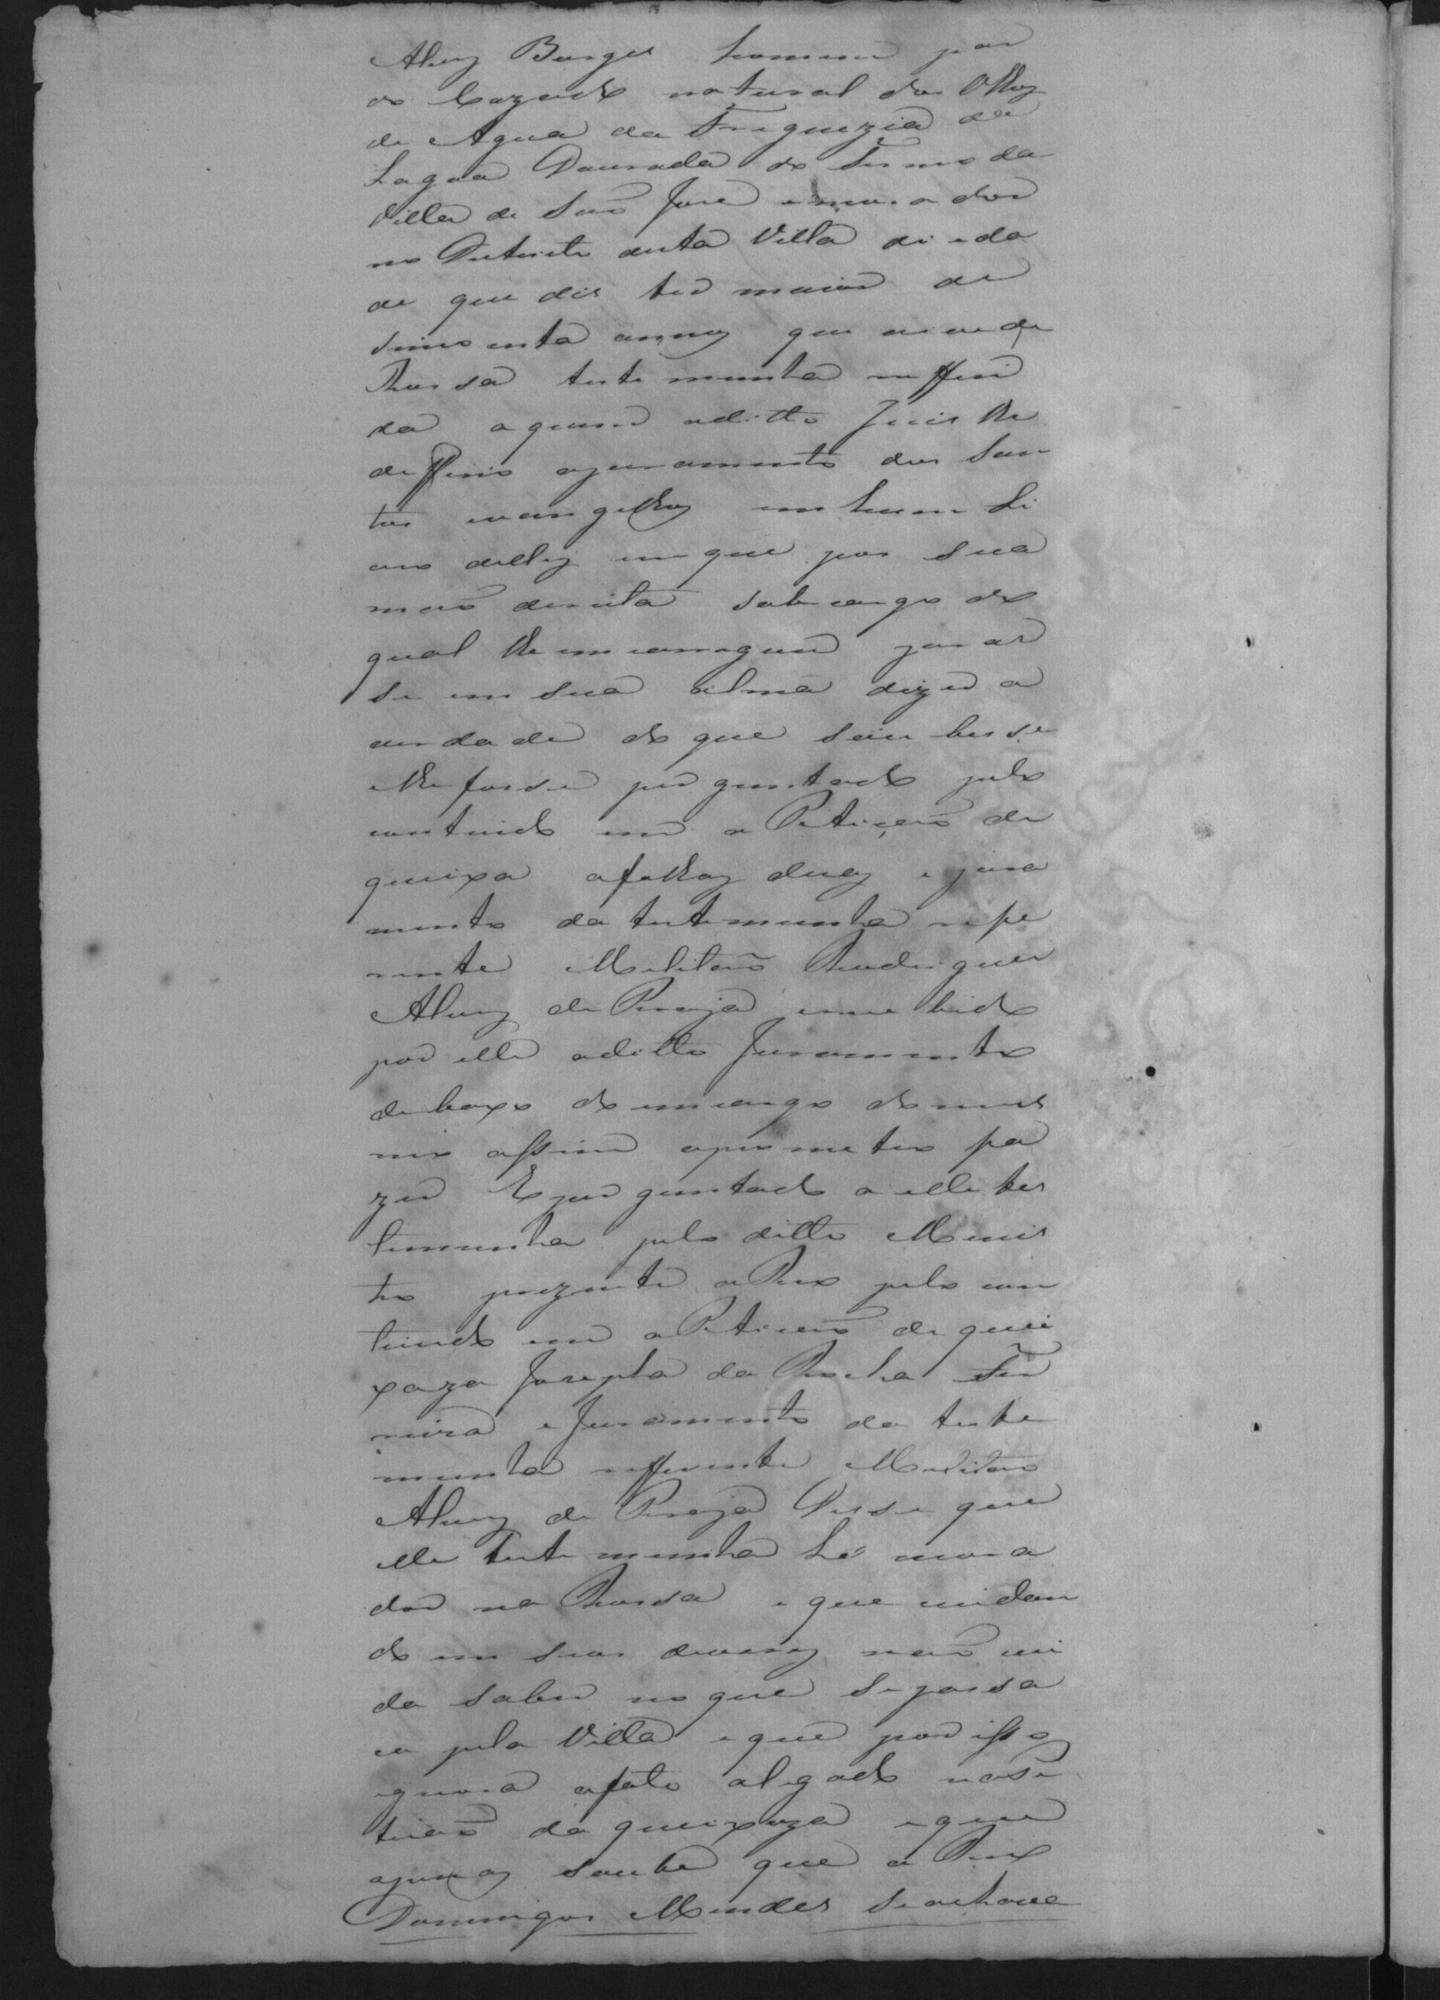 Alvez Borges homem par
do Cazado natural dos Olhoz
de Agua da Freguezia da
Lagoa Dourada do Termo da
Villa de Saõ Jose e morador
no Destricto desta Villa de ida
de que dis ter maior de
sincoenta annoz que vive de
Rossa testemunha reffiri
da aquem oditto Juis lhe
defferio ojuramento dos San
tos evangelhoz em hum Li
vro dellez em que pos sua
maõ direita sob cargo do
qual lhe encarregou juras
se em sua alma dizer a
verdade do que soubesse
elhe fosse perguntado pelo
contiudo em a Petiçaõ de
queixa afolhaz duaz e jura
mento da testemunha refe
rente Militaõ Rodrigues
Alvez de Araujo erecebido
por elle oditto Juramento
debaxo do encargo do mes
mo assim oprometeo fa
zer E perguntado a elle tes
temunha pelo ditto Minis
tro prezente o Reo pelo con
tiudo em a Peticaõ de quei
xoza Josepha da Rocha Fer
reira e Juramento da teste
munha refferente Militaõ
Alvez de Araujo Disse que
elle testemunha he mora
dor na Rossa e que cuidan
do em seos deverez naõ cui
da saber no que se passa
ca pela Villa e que por isso
ignora ofato alegado naPe
tiçaõ da queixoza e que
apenaz soube que o Reo
Domingos Mendes se achava